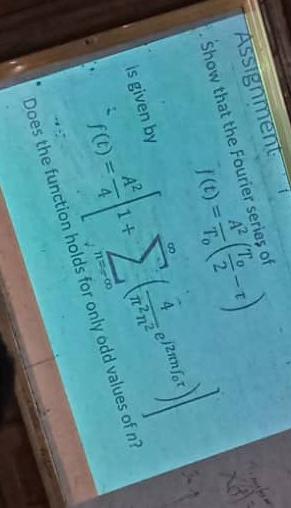 Assignment
Show that the Fourier series of
f(t) = A²/T₀ (T₀/2 − τ)
is given by
f(t) = A²/4 [1 + ∑_{n=-∞}^{∞} (4/(π²n²) e^{j2πnf₀τ})]
Does the function holds for only odd values of n?